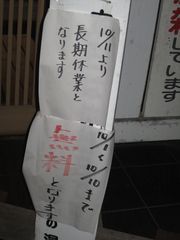 しています
10/11より
長期休業と
なります
10/1〜10/10まで
無料
となります